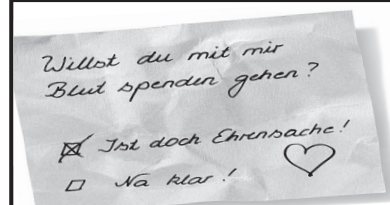 Willst du mit mir
Blut spenden gehen?
☒ Ist doch Ehrensache!
☐ Na klar!